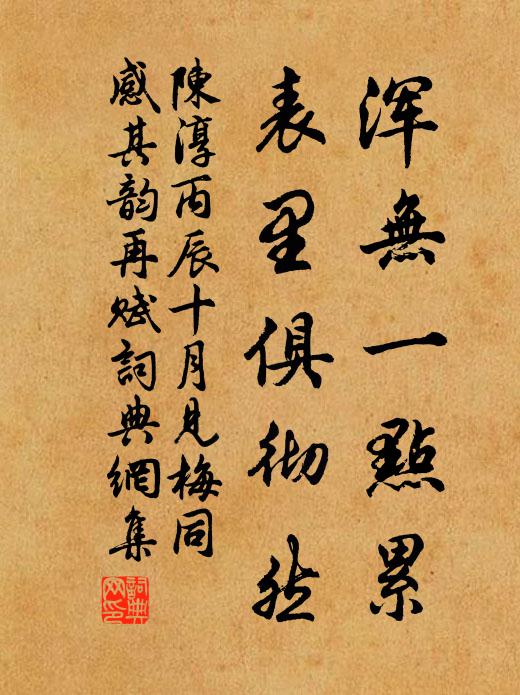 渾無一點累
表里俱彻然
陳淳丙辰十月見梅同
感其韵再赋詞典網集
詞典网印